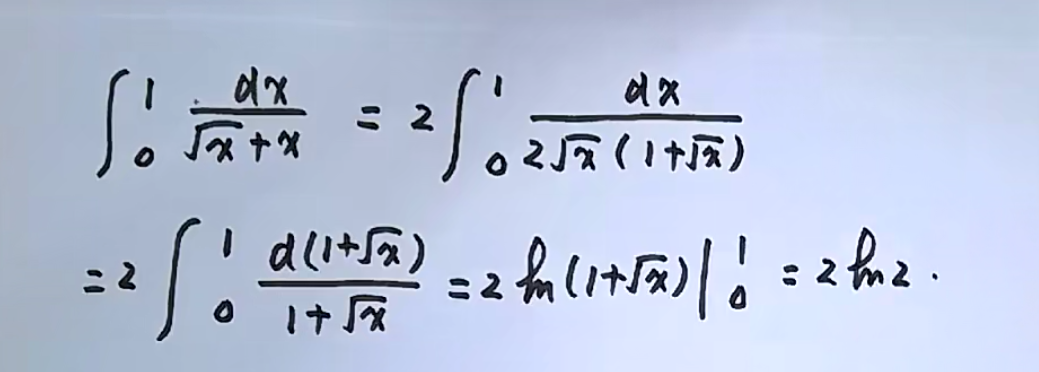 ∫₀¹ dx/(√x+x) = 2∫₀¹ dx/(2√x(1+√x))
=2∫₀¹ d(1+√x)/(1+√x) =2 ln(1+√x)|₀¹ = 2 ln2.